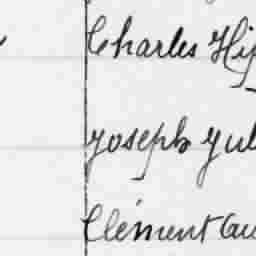 Charles Hip
Joseph Jul
Clément Au